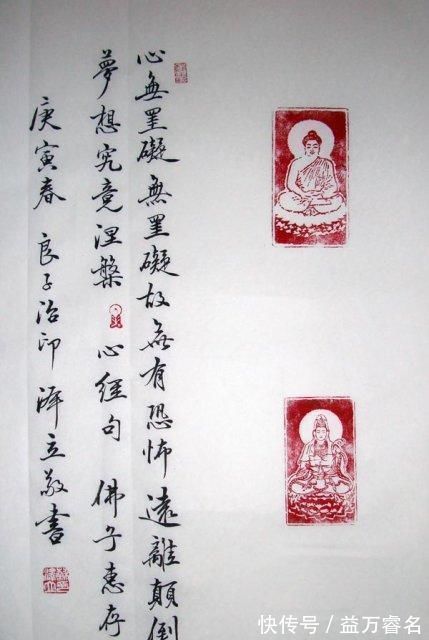 心無罣礙無罣礙故無有恐怖遠離顛倒
夢想究竟涅槃 心經句 佛子惠存
庚寅春 良子治印 立敬書
快传号 / 益万睿名